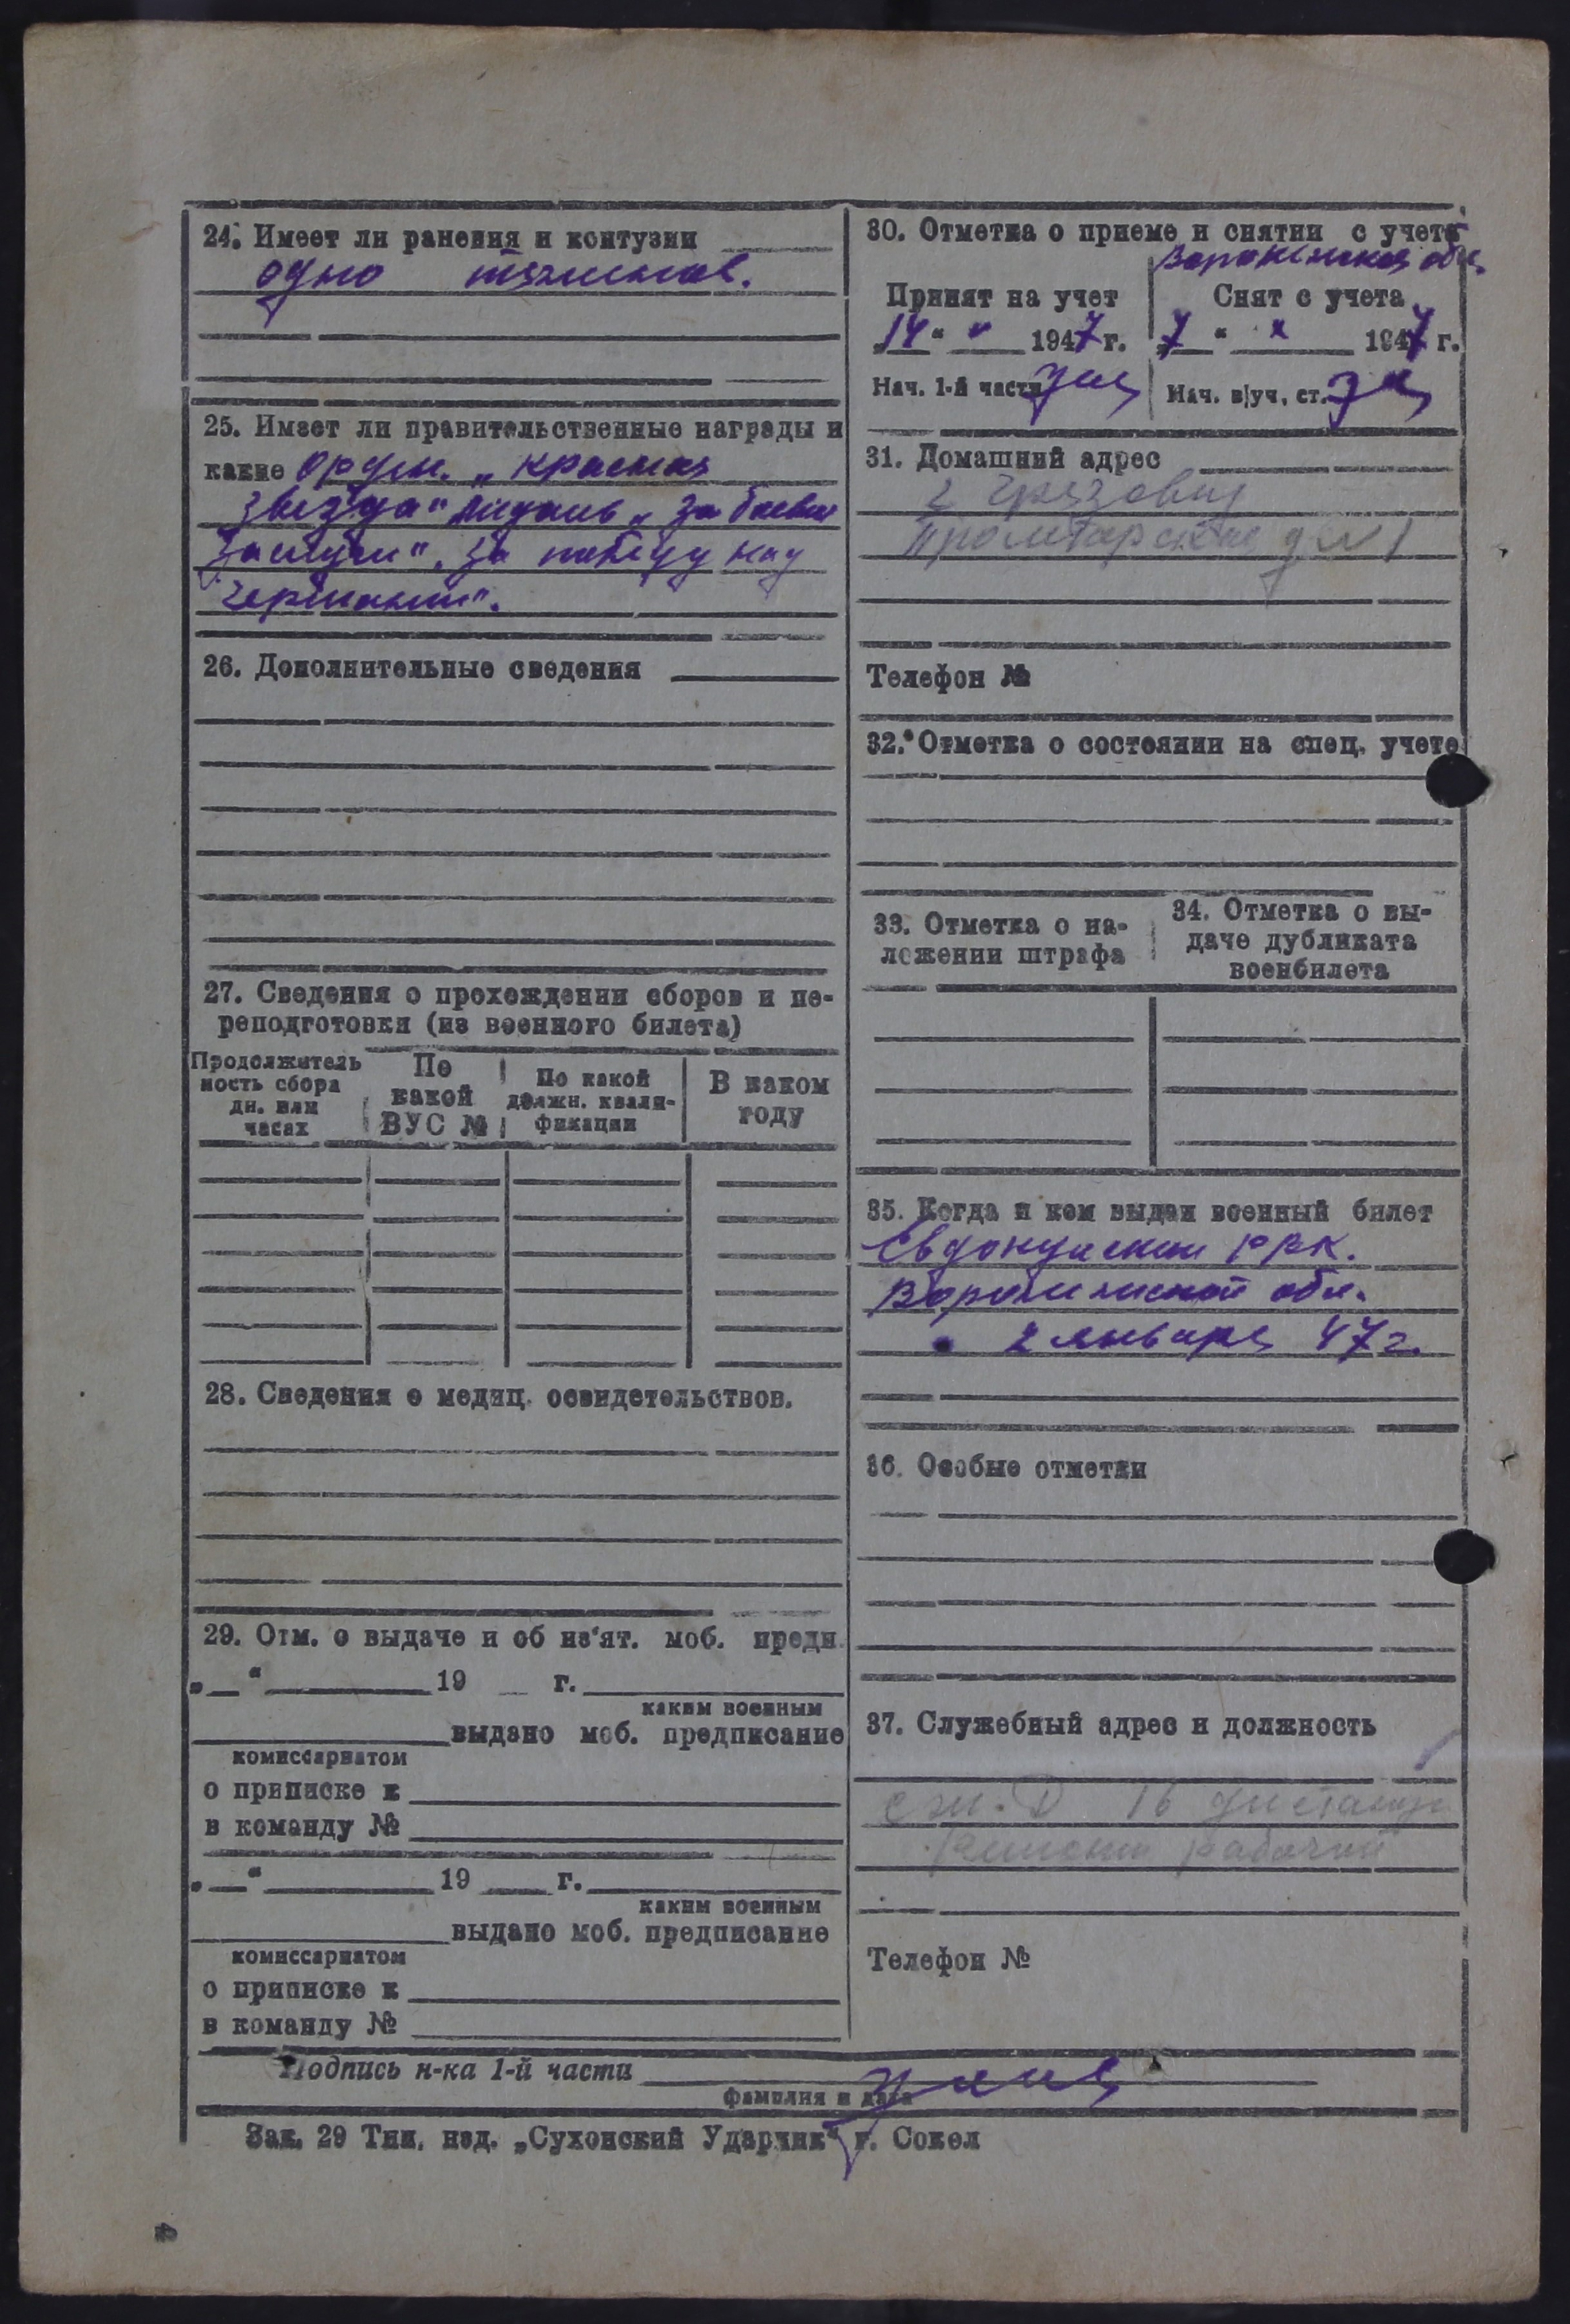 24. Имеет ли ранения и контузии
одно тяжелое.
25. Имеет ли правительственные награды и
какие орден. „Красная
звезда" медаль „За боевые
заслуги". За победу над
Германией".
26. Дополнительные сведения
27. Сведения о прохождении сборов и пе-
реподготовки (из военного билета)
Продолжитель
ность сбора
дн. или
часах
По
какой
ВУС №
По какой
должн. квали-
фикации
В каком
году
28. Сведения о медиц. освидетельствов.
29. Отм. о выдаче и об из'ят. моб. предп.
„__" 19 __ г.
каким военным
выдано моб. предписание
комиссариатом
о приписке к
в команду №
„__" 19 __ г.
каким военным
выдано моб. предписание
комиссариатом
о приписке к
в команду №
30. Отметка о приеме и снятии с учета
Воронежская обл.
Принят на учет
„14" 1947 г.
Нач. 1-й части
Снят с учета
„7" х 1947 г.
Нач. в|уч. ст.
31. Домашний адрес
г Грязовец
Пролетарская д №1
Телефон №
32. Отметка о состоянии на спец. учете
33. Отметка о на-
ложении штрафа
34. Отметка о вы-
даче дубликата
военбилета
35. Когда и кем выдан военный билет
РВК.
Воронежской обл.
2 января 47г.
36. Особые отметки
37. Служебный адрес и должность
Сж. Д 16 дистанц
Ремонт рабочий
Телефон №
Подпись н-ка 1-й части
фамилия и дата
Зак. 29 Тип. изд. „Сухонский Ударник" г. Сокол